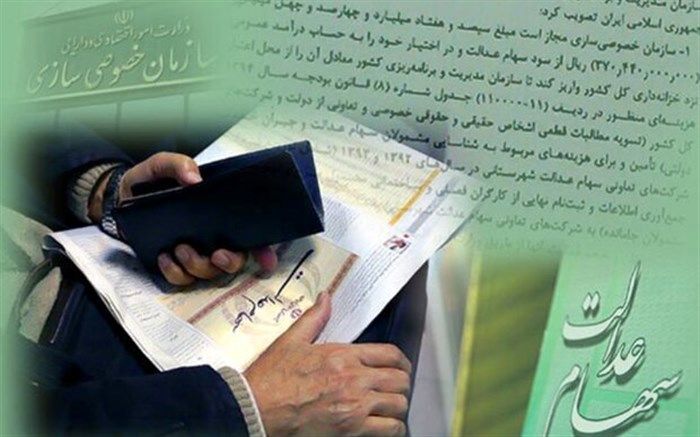 وزارت امور اقتصادی و دارایی
سازمان خصوصی سازی
جمهوری اسلامی ایران تصویب کرد:
۱- سازمان خصوصی‌سازی مجاز است مبلغ سیصد و هفتاد میلیارد و چهارصد و چهل میلیون
(۳۷۰٫۴۴۰٫۰۰۰٫۰۰۰) ریال از سود سهام عدالت و در اختیار خود را به حساب درآمد عمومی
نزد خزانه‌داری کل کشور واریز کند تا سازمان مدیریت و برنامه‌ریزی کشور معادل آن را از محل اعتبار
هزینه‌ای منظور در ردیف (۱۱-۱۱۰۰۰۰) جدول شماره (۸) قانون بودجه سال ۱۳۹۴
کل کشور (تسویه مطالبات قطعی اشخاص حقیقی و حقوقی خصوصی و تعاونی از دولت و شرکت‌های
دولتی) تأمین و برای هزینه‌های مربوط به شناسایی مشمولان سهام عدالت و جبران
شرکت‌های تعاونی سهام عدالت شهرستانی در سال‌های ۱۳۹۲ و ۱۳۹۳
جمع‌آوری اطلاعات و ثبت‌نام نهایی از کارگران فصلی و ساختمانی
مشمولان جامانده) به شرکت‌های تعاونی سهام عدالت
سهام عدالت